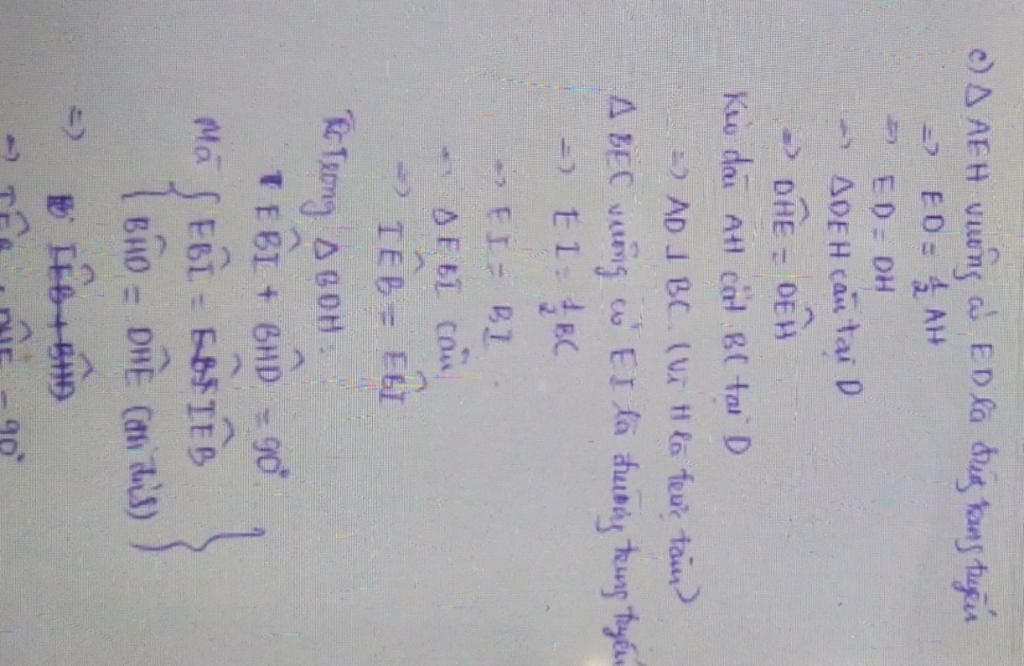 c) Δ AEH vuông có ED là đường trung tuyến
=> ED = 1/2 AH
=> ED = DH
=> Δ DEH cân tại D
=> DHE = DEH
Kéo dài AH cắt BC tại D
=> AD ⊥ BC. (Vì H là trực tâm)
Δ BEC vuông có EI là đường trung tuyến
=> EI = 1/2 BC
=> EI = BI
=> Δ EBI cân
=> IEB = EBI
Trong Δ BDH:
EBI + BHD = 90°
Mà { EBI = IEB
BHD = DHE (đối đỉnh) }
=> IEB + BHD
=> IEB + DHE = 90°